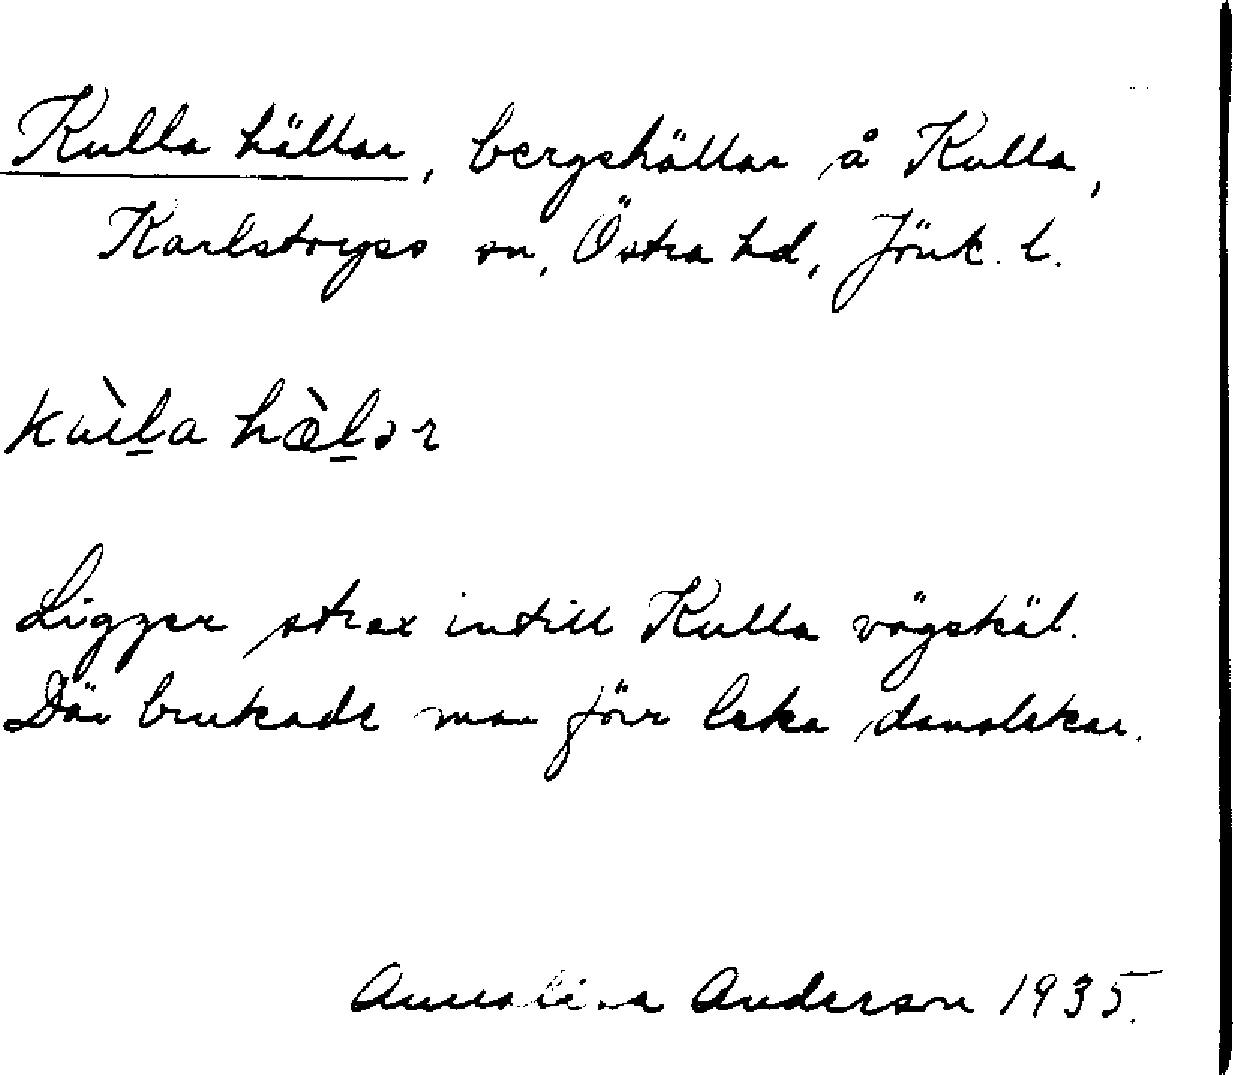 Kulla hällar, bergshällar å Kulla,
Karlstorps sn, Östra hd, Jönk. l.
kùl̲a hæ̀l̲ər
Ligger strax intill Kulla vägskäl.
Där brukade man förr leka danslekar.
Annalisa Anderson 1935.